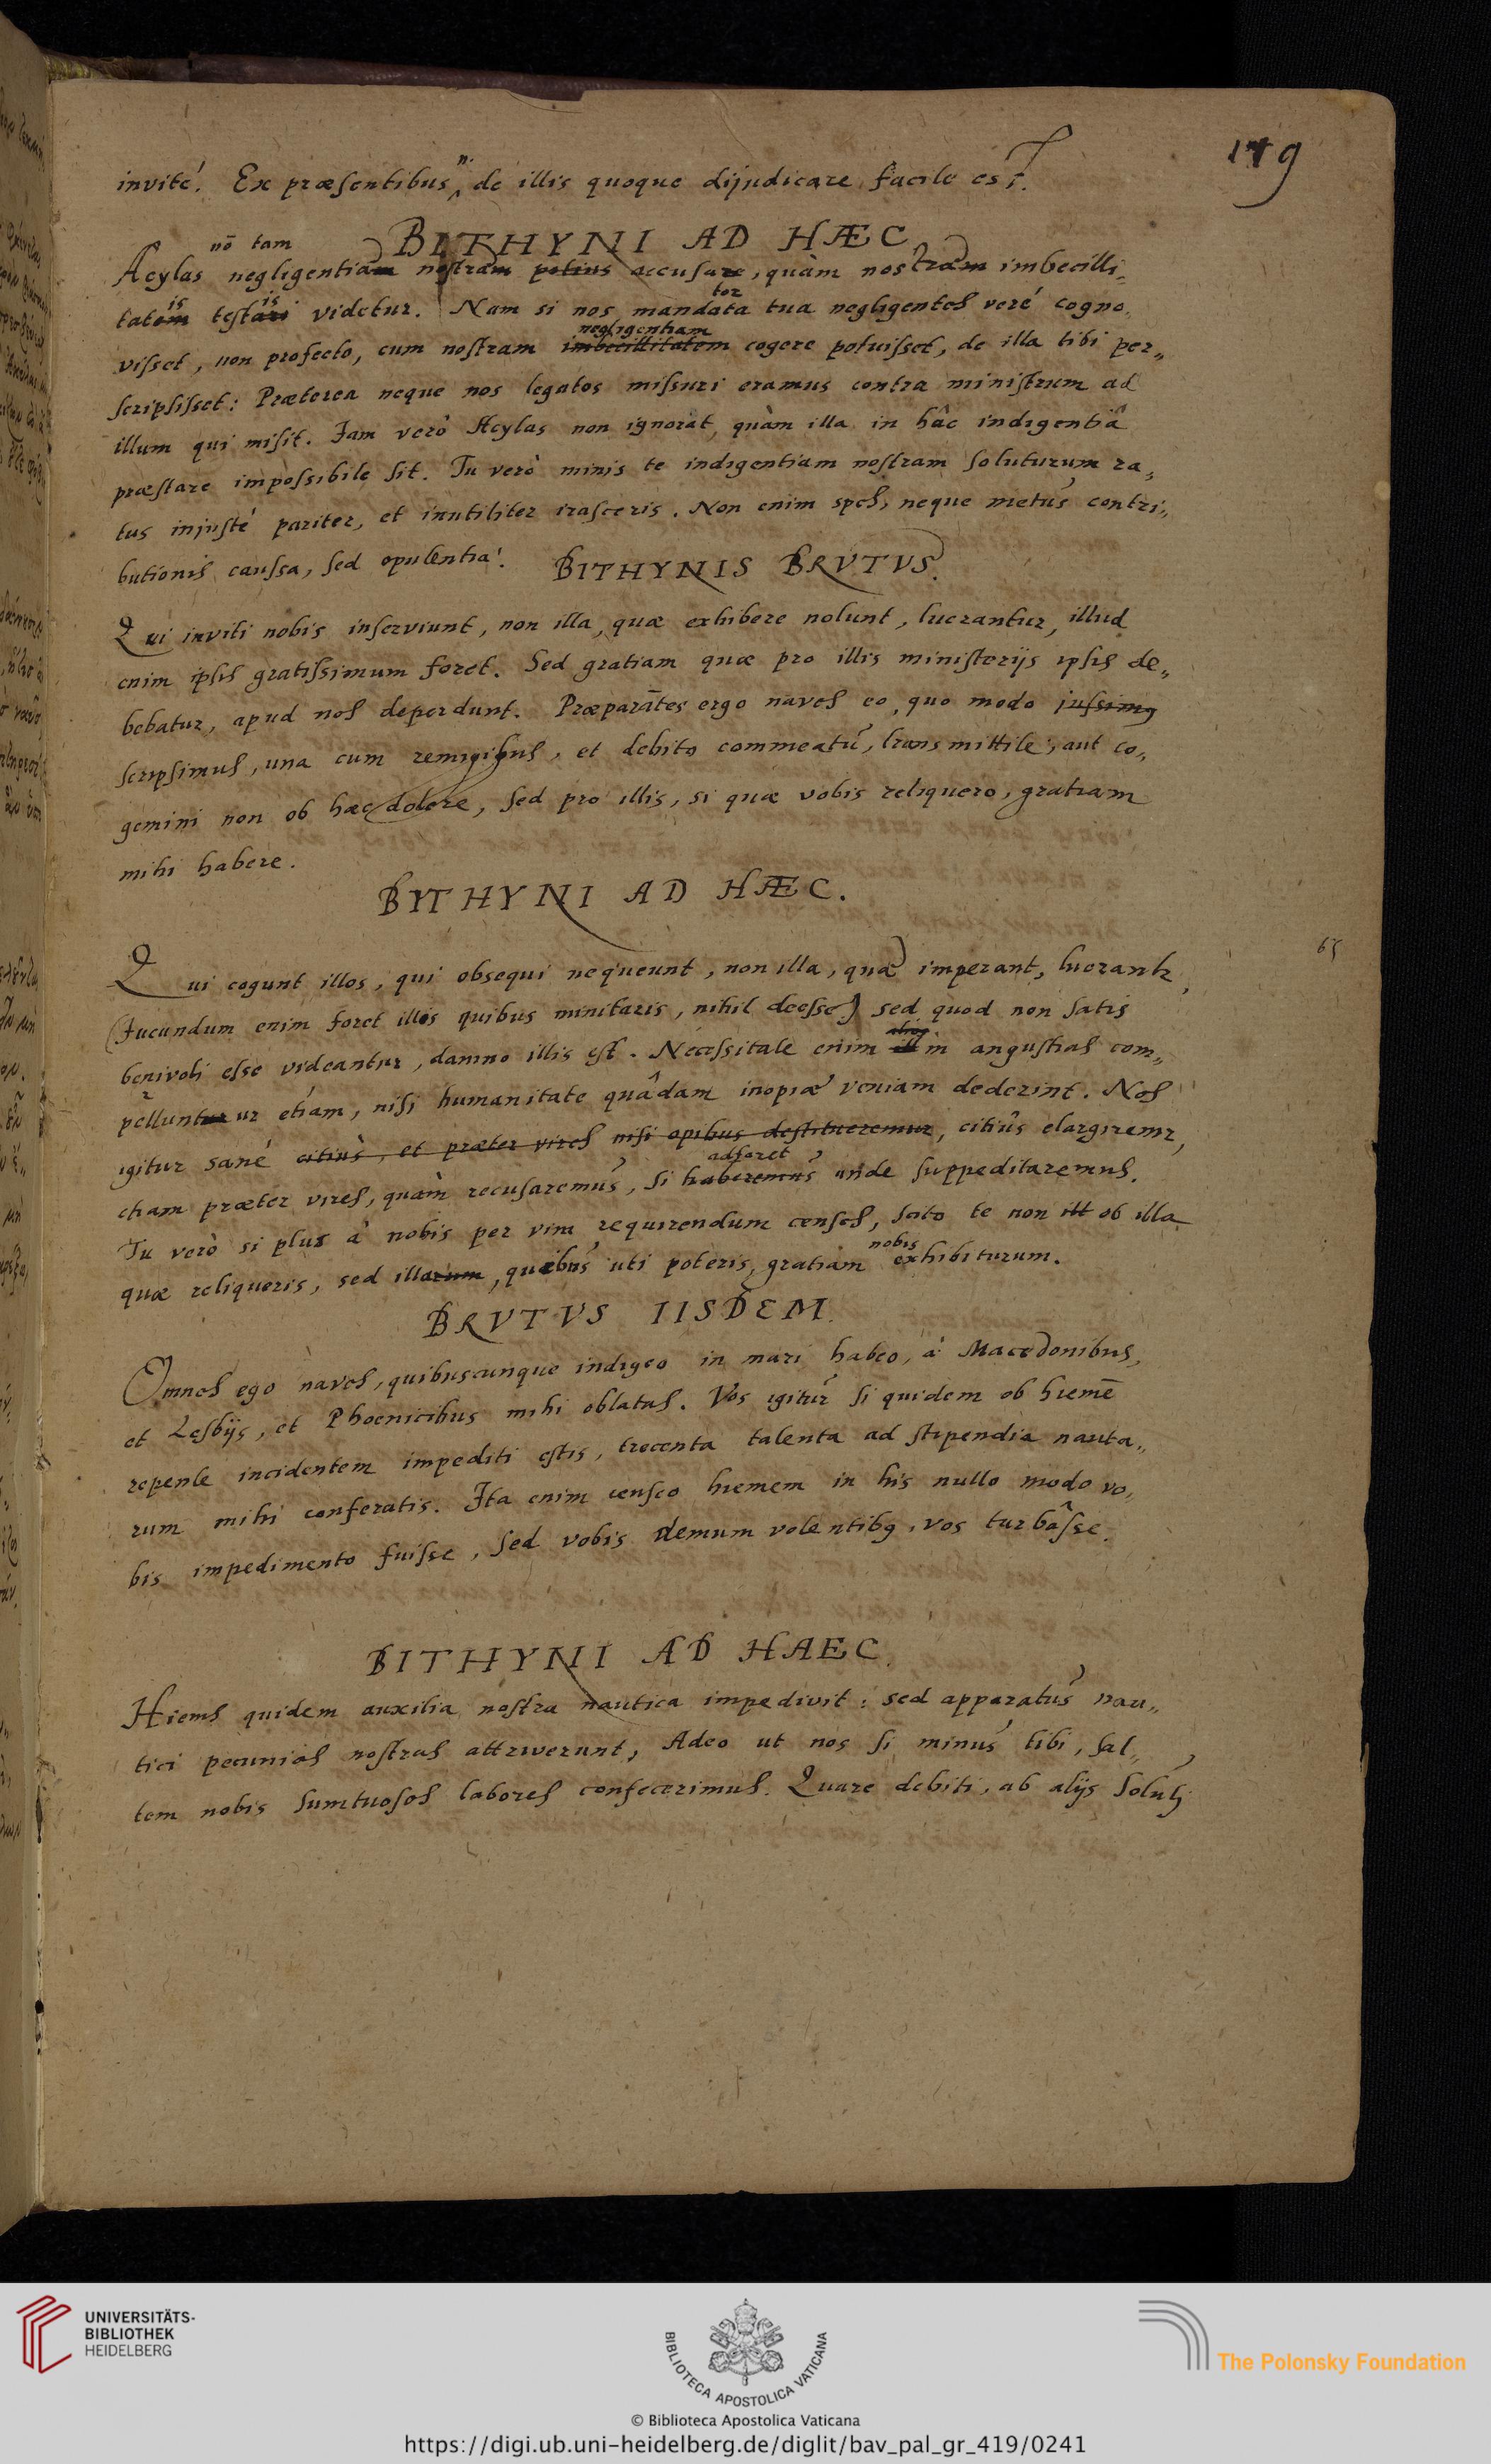 179
invité. Ex præsentibus n. de illis quoque dijudicare facile est.
BITHYNI AD HÆC
nō tam
Acylas negligentiam nostram potius accusare, quàm nostram imbecilli„
is is tor
tatem testari videtur. Nam si nos mandata tua negligentes veré cogno„
negligentiam
visset, non profecto, cum nostram imbecillitatem cogere potuisset, de illa tibi per„
scripsisset: Præterea neque nos legatos missuri eramus contra ministrum ad
illum qui misit. Iam verò Acylas non ignorat, quàm illa in hâc indigentiâ
præstare impossibile sit. Tu verò minis te indigentiam nostram soluturum ra„
tus injusté pariter, et inutiliter irasceris. Non enim spes, neque metus contri„
butionis caussa, sed opulentia.
BITHYNIS BRVTVS.
Qui inviti nobis inserviunt, non illa, quæ exhibere nolunt, lucrantur, illud
enim ipsis gratissimum foret. Sed gratiam quæ pro illis ministerijs ipsis de„
bebatur, apud nos deperdunt. Præparātes ergo naves eo, quo modo jussimus
scripsimus, una cum remigibus, et debito commeatu, transmittite, aut co„
gemini non ob hæc dolere, sed pro illis, si quæ vobis reliquero, gratiam
mihi habere.
BITHYNI AD HÆC.
65
Qui cogunt illos, qui obsequi nequeunt, non illa, quæ imperant, lucrantr,
(Iucundum enim foret illos quibus minitaris, nihil deesse) sed quod non satis
benivoli esse videantur, damno illis est. Necessitate enim in angustias com„
pelluntur ur etiam, nisi humanitate quâdam inopiæ veniam dederint. Nos
igitur sané citiùs, et præter vires nisi opibus destitueremur, citiùs elargiremr,
adforet
etiam præter vires, quàm recusaremus, si haberemus unde suppeditaremus.
Tu verò si plus à nobis per vim requirendum censes, scito te non ill ob illa
nobis
quæ reliqueris, sed illarum, quibus uti poteris, gratiam exhibiturum.
BRVTVS IISDEM.
Omnes ego naves, quibuscunque indigeo in mari habeo, à Macedonibus,
et Lesbijs, et Phoenicibus mihi oblatas. Vos igitur si quidem ob hiemē
repente incidentem impediti estis, trecenta talenta ad stipendia nauta„
rum mihi conferatis. Ita enim censeo hiemem in his nullo modo vo„
bis impedimento fuisse, sed vobis demum volentibꝫ, vos turbâsse.
BITHYNI AD HAEC.
Hiems quidem auxilia nostra nautica impedivit: sed apparatus nau„
tici pecunias nostras attriverunt, Adeo ut nos si minus tibi, sal„
tem nobis sumtuosos labores confecerimus. Quare debiti, ab alijs soluti
UNIVERSITÄTS-
BIBLIOTHEK
HEIDELBERG
BIBLIOTECA APOSTOLICA VATICANA
The Polonsky Foundation
© Biblioteca Apostolica Vaticana
https://digi.ub.uni-heidelberg.de/diglit/bav_pal_gr_419/0241